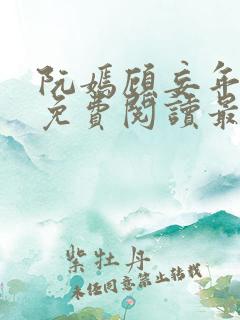 阮嫣顧妄年
免費閱讀最
紫牡丹
未经同意禁止转载